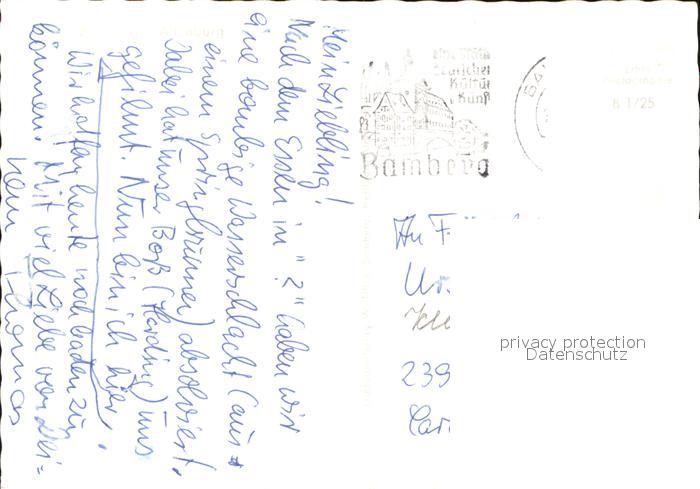 Mein Liebling!
Nach dem Essen in "?" haben wir
eine bombige Wasserschlacht (aus
einem Springbrunnen) absolviert.
Dabei hat unser Boß (Harding) uns
gefilmt. Nun bin ich hier.
Wir hoffen heute noch baden zu
können. Mit viel Liebe von Dei=
nem Thomas
eine Stätte
deutscher
Kultur
u Kunst
Bamberg
B 1725
An F
Ur
239
privacy protection
Datenschutz